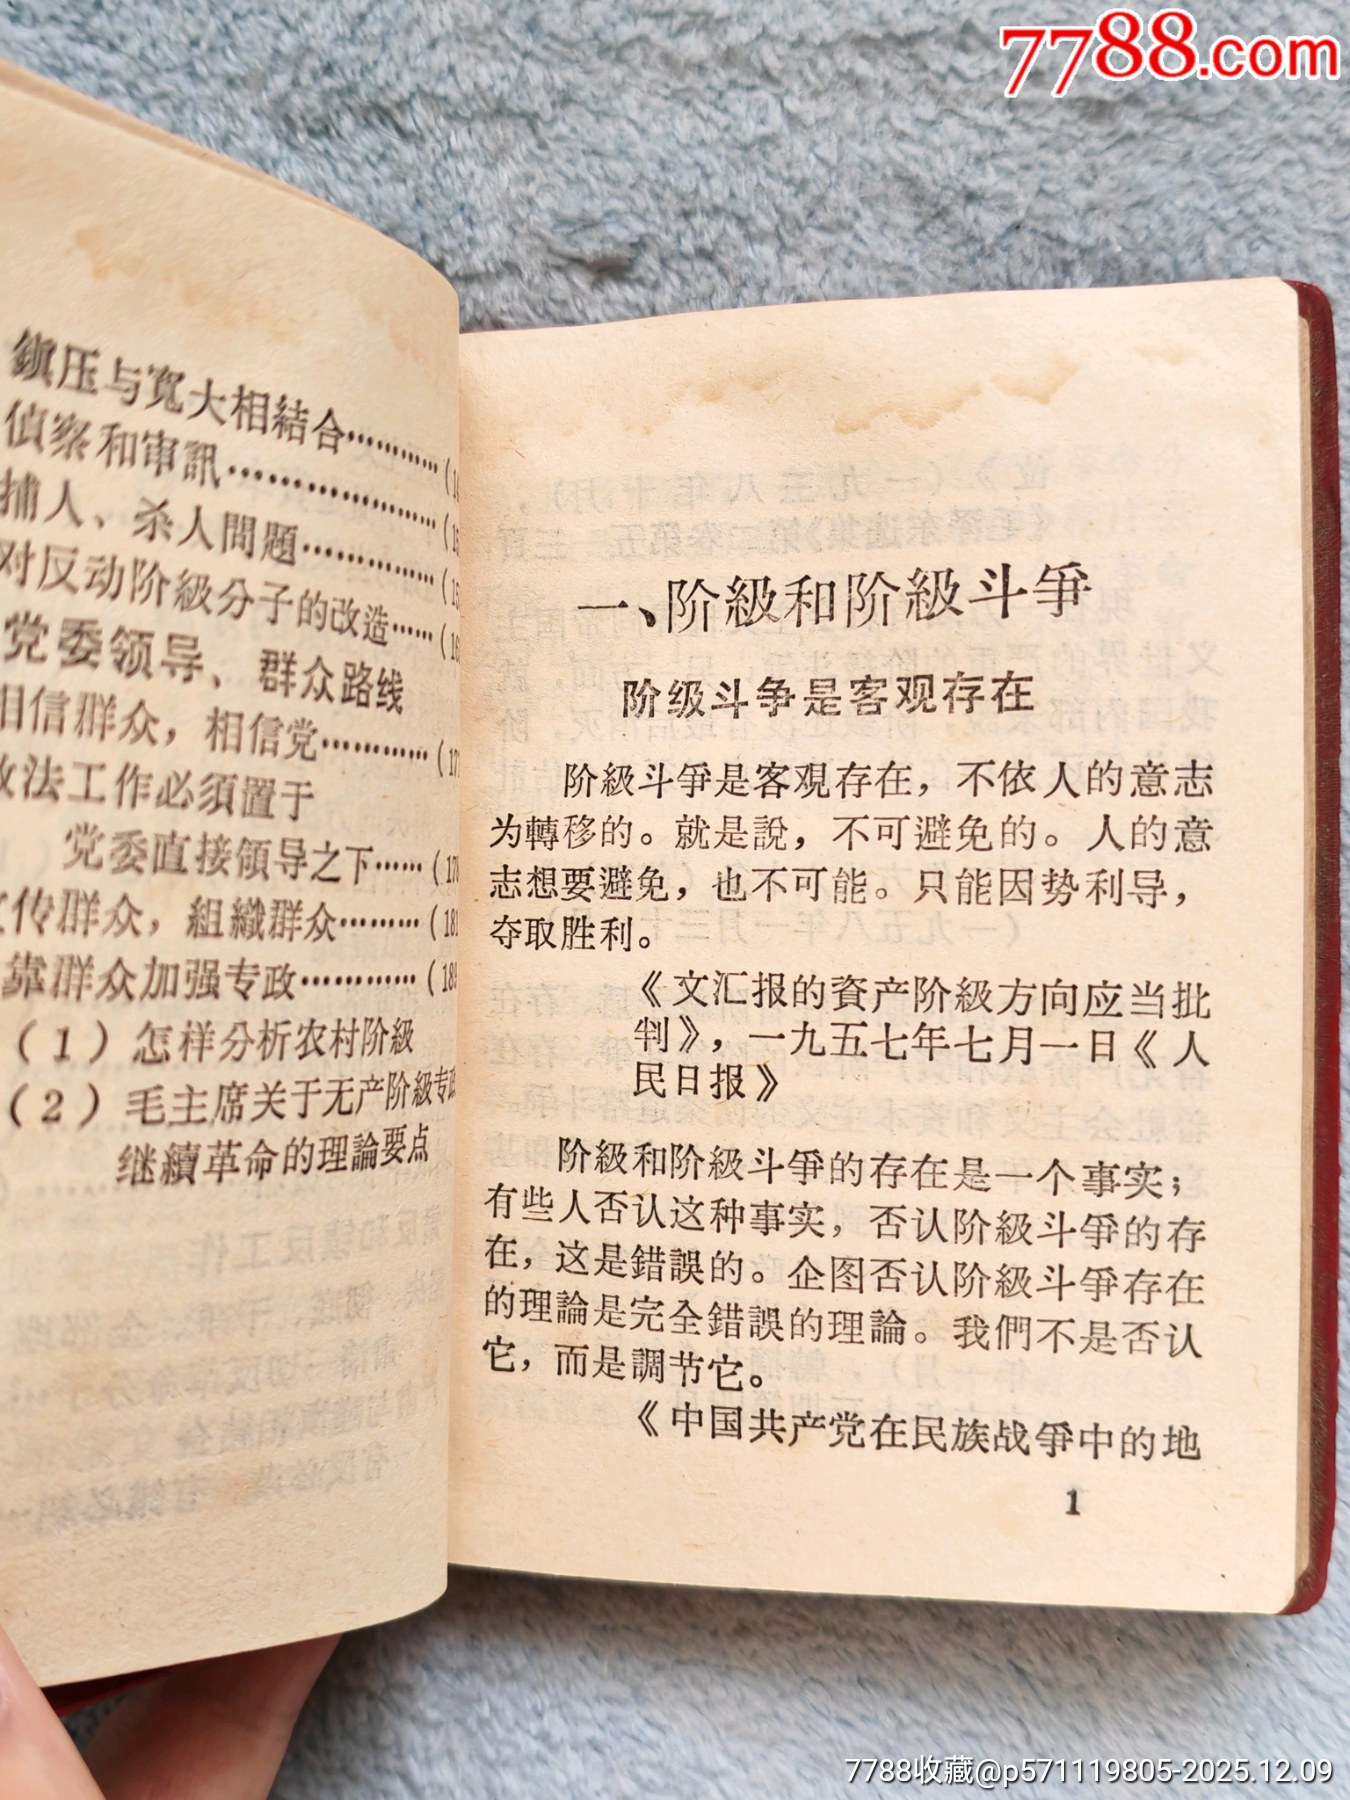 7788.com
鎮压与寬大相結合…………(1
偵察和审訊………………(1
捕人、杀人問題…………(1
对反动阶級分子的改造……(16
党委领导、群众路线
相信群众，相信党…………(17
政法工作必須置于
党委直接領导之下……(17
传群众，組織群众………(181
靠群众加强专政…………(18
(1) 怎样分析农村阶級
(2) 毛主席关于无产阶級专政
继續革命的理論要点
一、阶級和阶級斗爭
阶级斗争是客观存在
阶級斗爭是客观存在，不依人的意志
为轉移的。就是說，不可避免的。人的意
志想要避免，也不可能。只能因势利导，
夺取胜利。
《文汇报的資产阶級方向应当批
判》，一九五七年七月一日《人
民日报》
阶級和阶級斗爭的存在是一个事实；
有些人否认这种事实，否认阶級斗爭的存
在，这是錯誤的。企图否认阶級斗爭存在
的理論是完全錯誤的理論。我們不是否认
它，而是調节它。
《中国共产党在民族战爭中的地
1
7788收藏@p571119805-2025.12.09